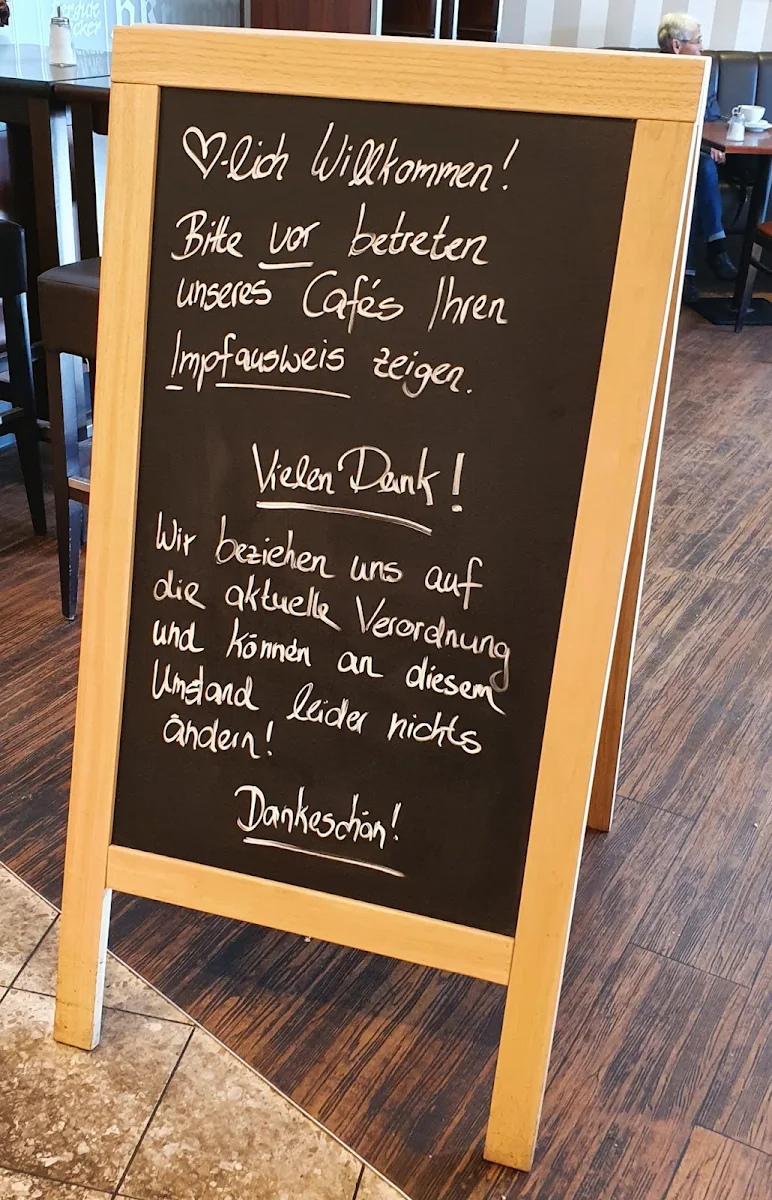 ♡-lich Willkommen!
Bitte vor betreten
unseres Cafés Ihren
Impfausweis zeigen.
Vielen Dank!
Wir beziehen uns auf
die aktuelle Verordnung
und können an diesem
Umstand leider nichts
ändern!
Dankeschön!